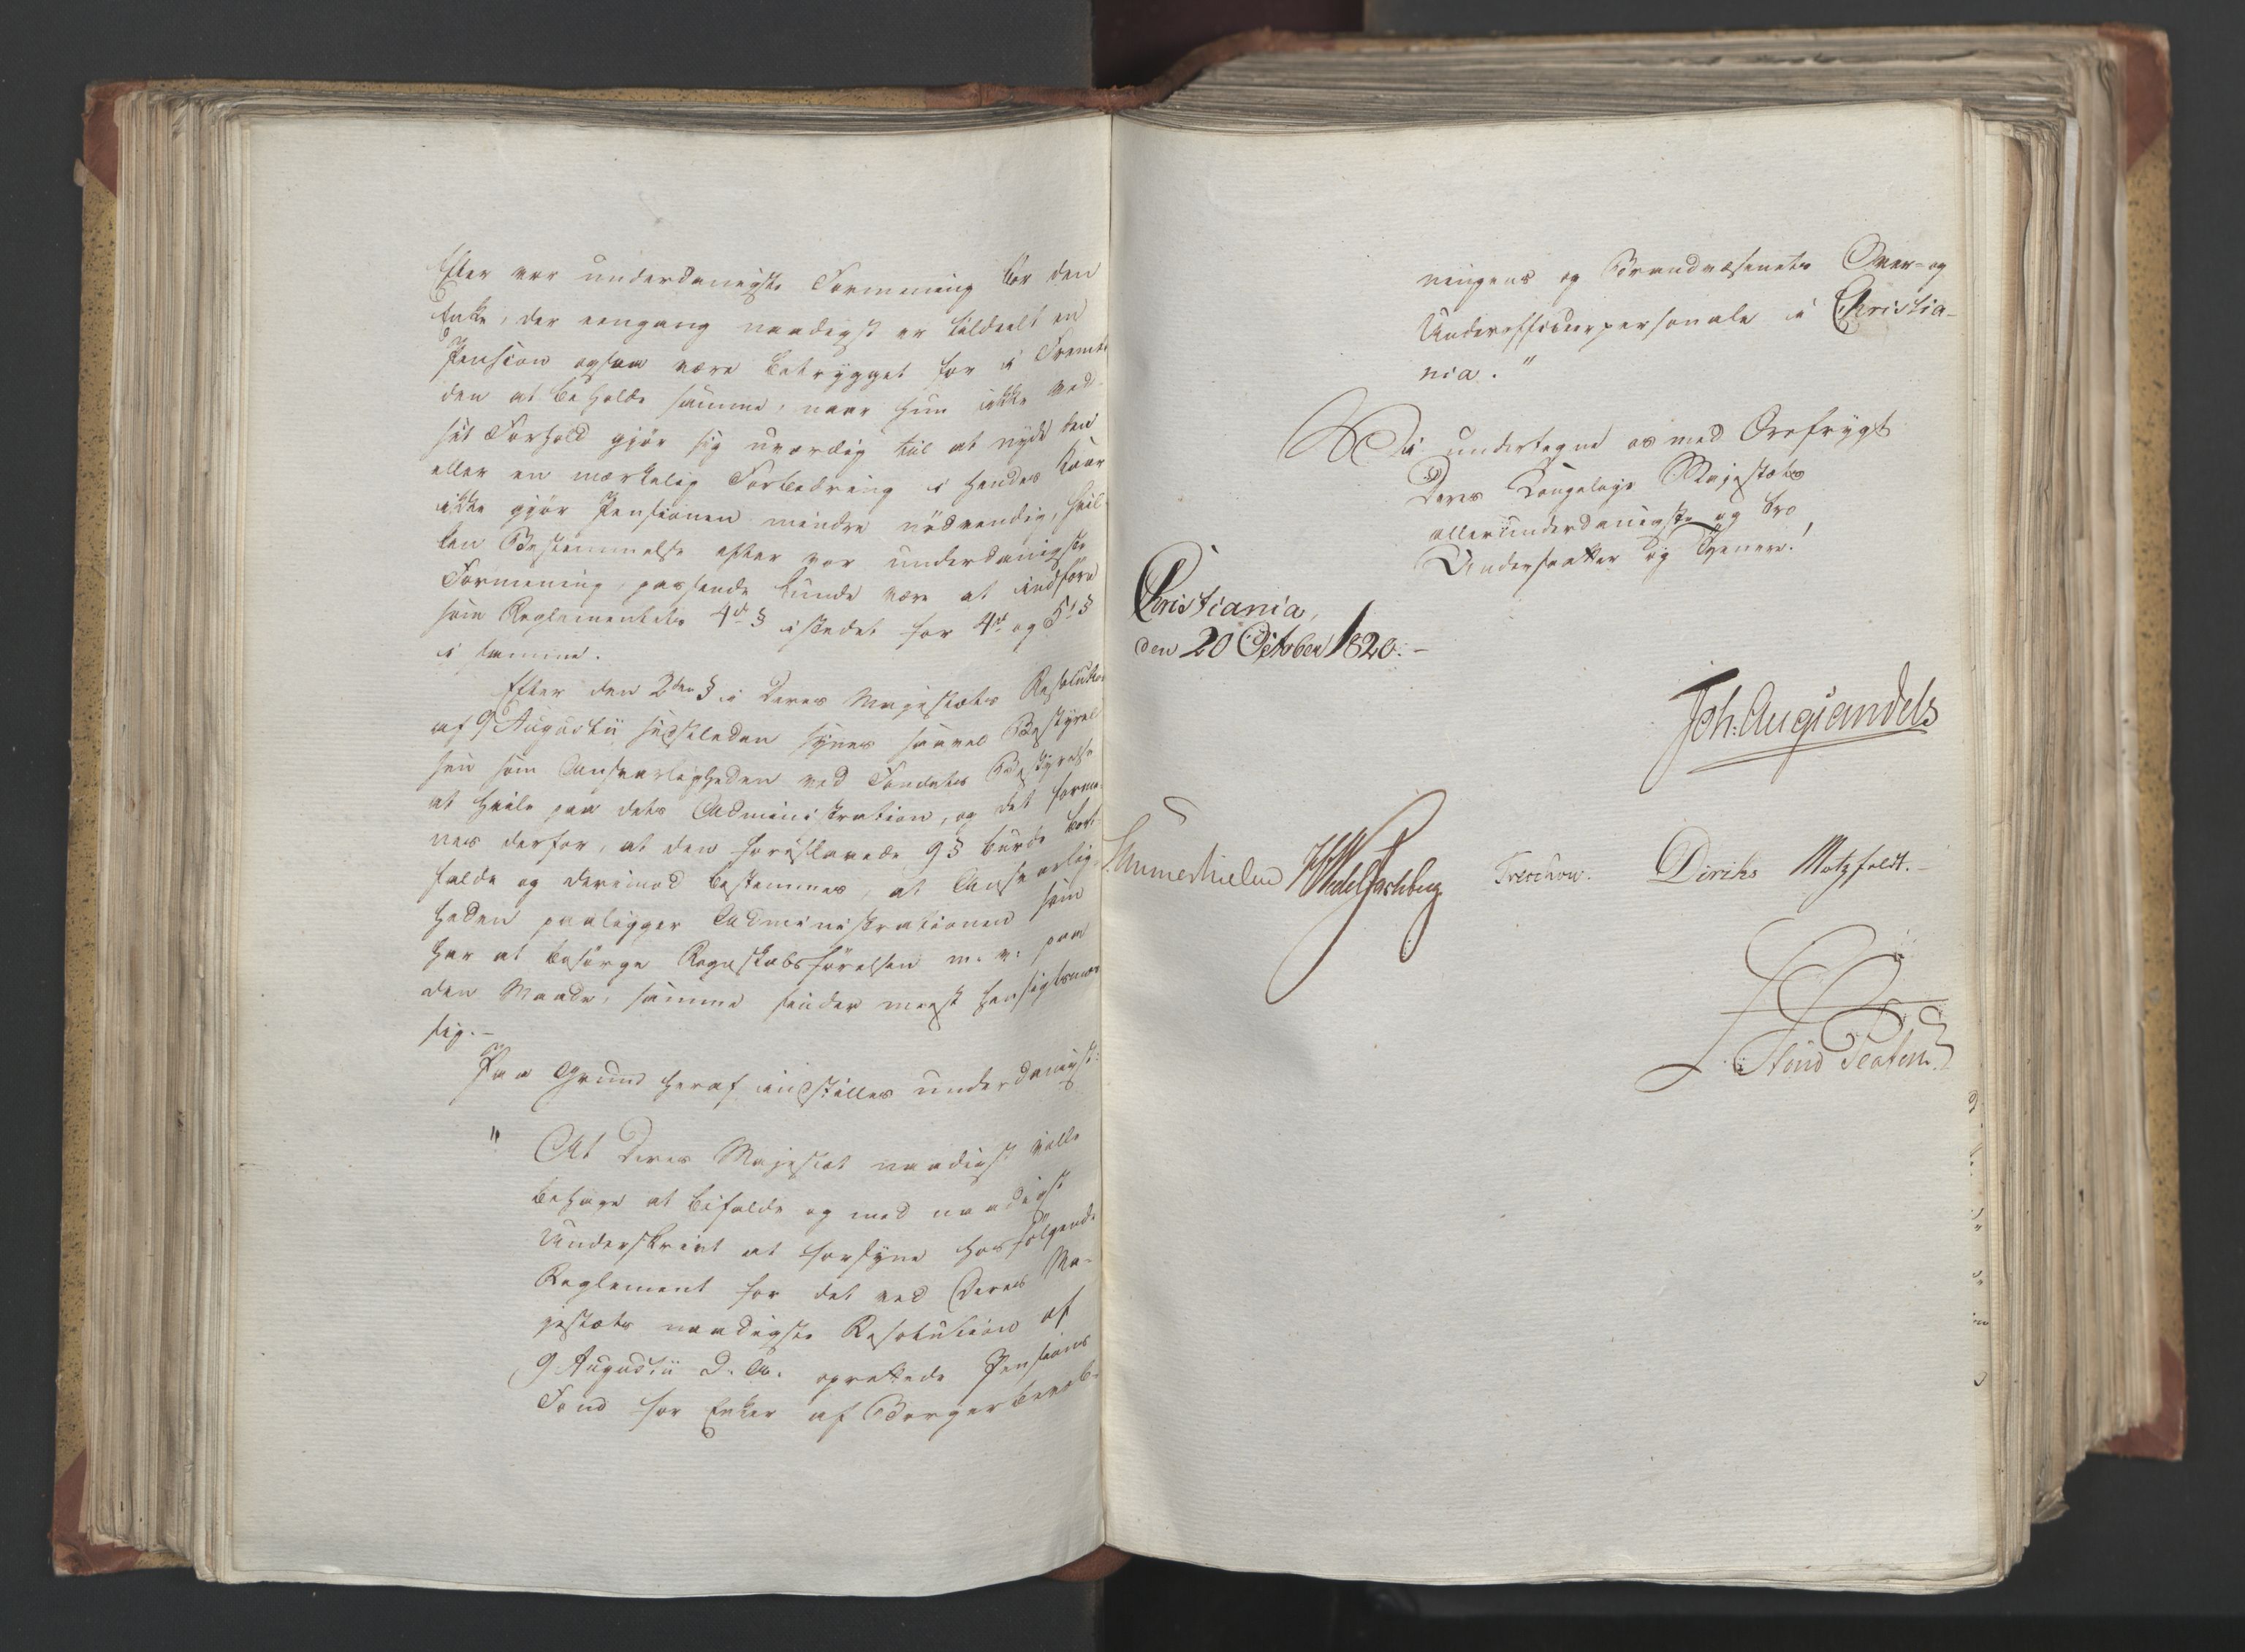 Efter vor underdanigste Formening bør den
Enke, der eengang naadigst er tildeelt en
Pension ogsaa være betrygget for i Fremti-
den at beholde samme, naar hun ikke ved
sit Forhold gjör sig uværdig til at nyde den
eller en mærkelig Forbedring i hendes Kaar
ikke gjör Pensionen mindre nödvendig, hvil-
ken Bestemmelse efter vor underdanigste
Formening, passende kunde være at indföre
som Reglementets 4de § istedet for 4de og 5te §
i samme.
Efter den 2den § i Deres Majestæts Resolution
af 9 Augustii sidstleden synes saavel Bestyrel-
sen som Ansvarligheden ved Fondets Bestyrelse
at hvile paa dets Administration, og det forme-
nes derfor, at den foreslaaede 9 § burde bort-
falde og derimod bestemmes, at Ansvarlig-
heden paaligger Administrationen som
har at besørge Regnskabsførelsen m. v. paa
den Maade, samme finder meest hensigtsmæs-
sig.-
Paa Grund heraf indstilles underdanigst:
" At Deres Majestæt naadigst ville
behage at bifalde og med naadigst
Underskrivt at forsyne hosfølgende
Reglement for det ved Deres Ma-
jestæts naadigste Resolution af
9 Augustii d. A. oprettede Pensions
Fond for Enker af Borgerbevæb-
ningens og Brandvæsenets Over- og
Underofficeerpersonale i Christia-
nia."
Vi undertegne os med Ærefrygt
Deres Kongelige Majestæts
allerunderdanigste og tro
Undersaatter og Tjenere!
Christiania,
den 20 October 1820.-
Joh: Aug: Sandels
Sommerhielm HWedelJarlsberg Treschow. Diriks Motzfeldt.-